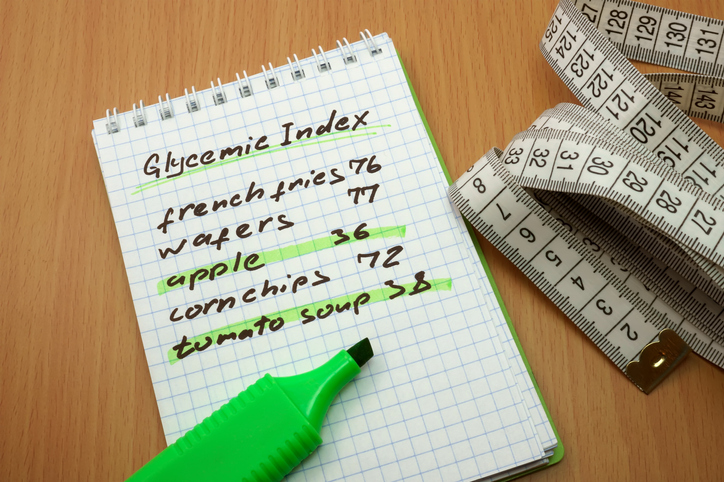 Glycemic Index
french fries 76
wafers 77
apple 36
corn chips 72
tomato soup 38
128 129 130 131
125 124 123 122 121 120
143
33 32 31 30 29 28 27
8 7 6 5 4 3 2